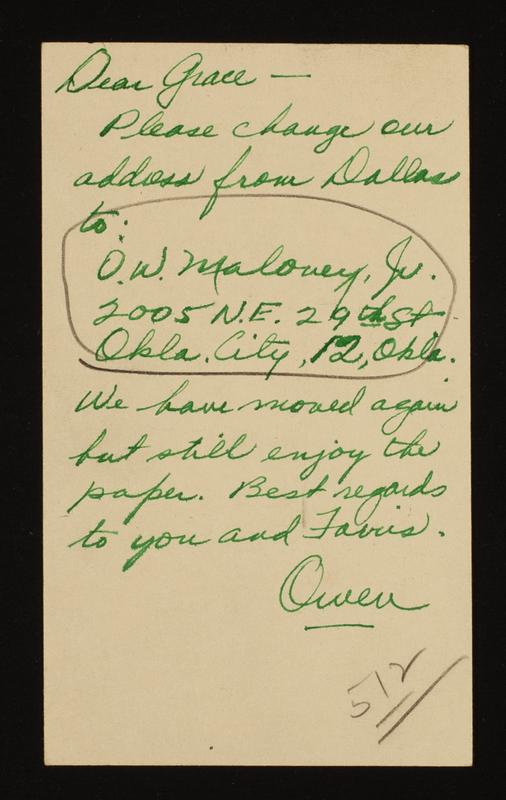 Dear Grace —
Please change our
address from Dallas
to:
O.W. Maloney, Jr.
2005 N.E. 29th St
Okla. City, 12, Okla.
We have moved again
but still enjoy the
paper. Best regards
to you and Favris.
Owen
512